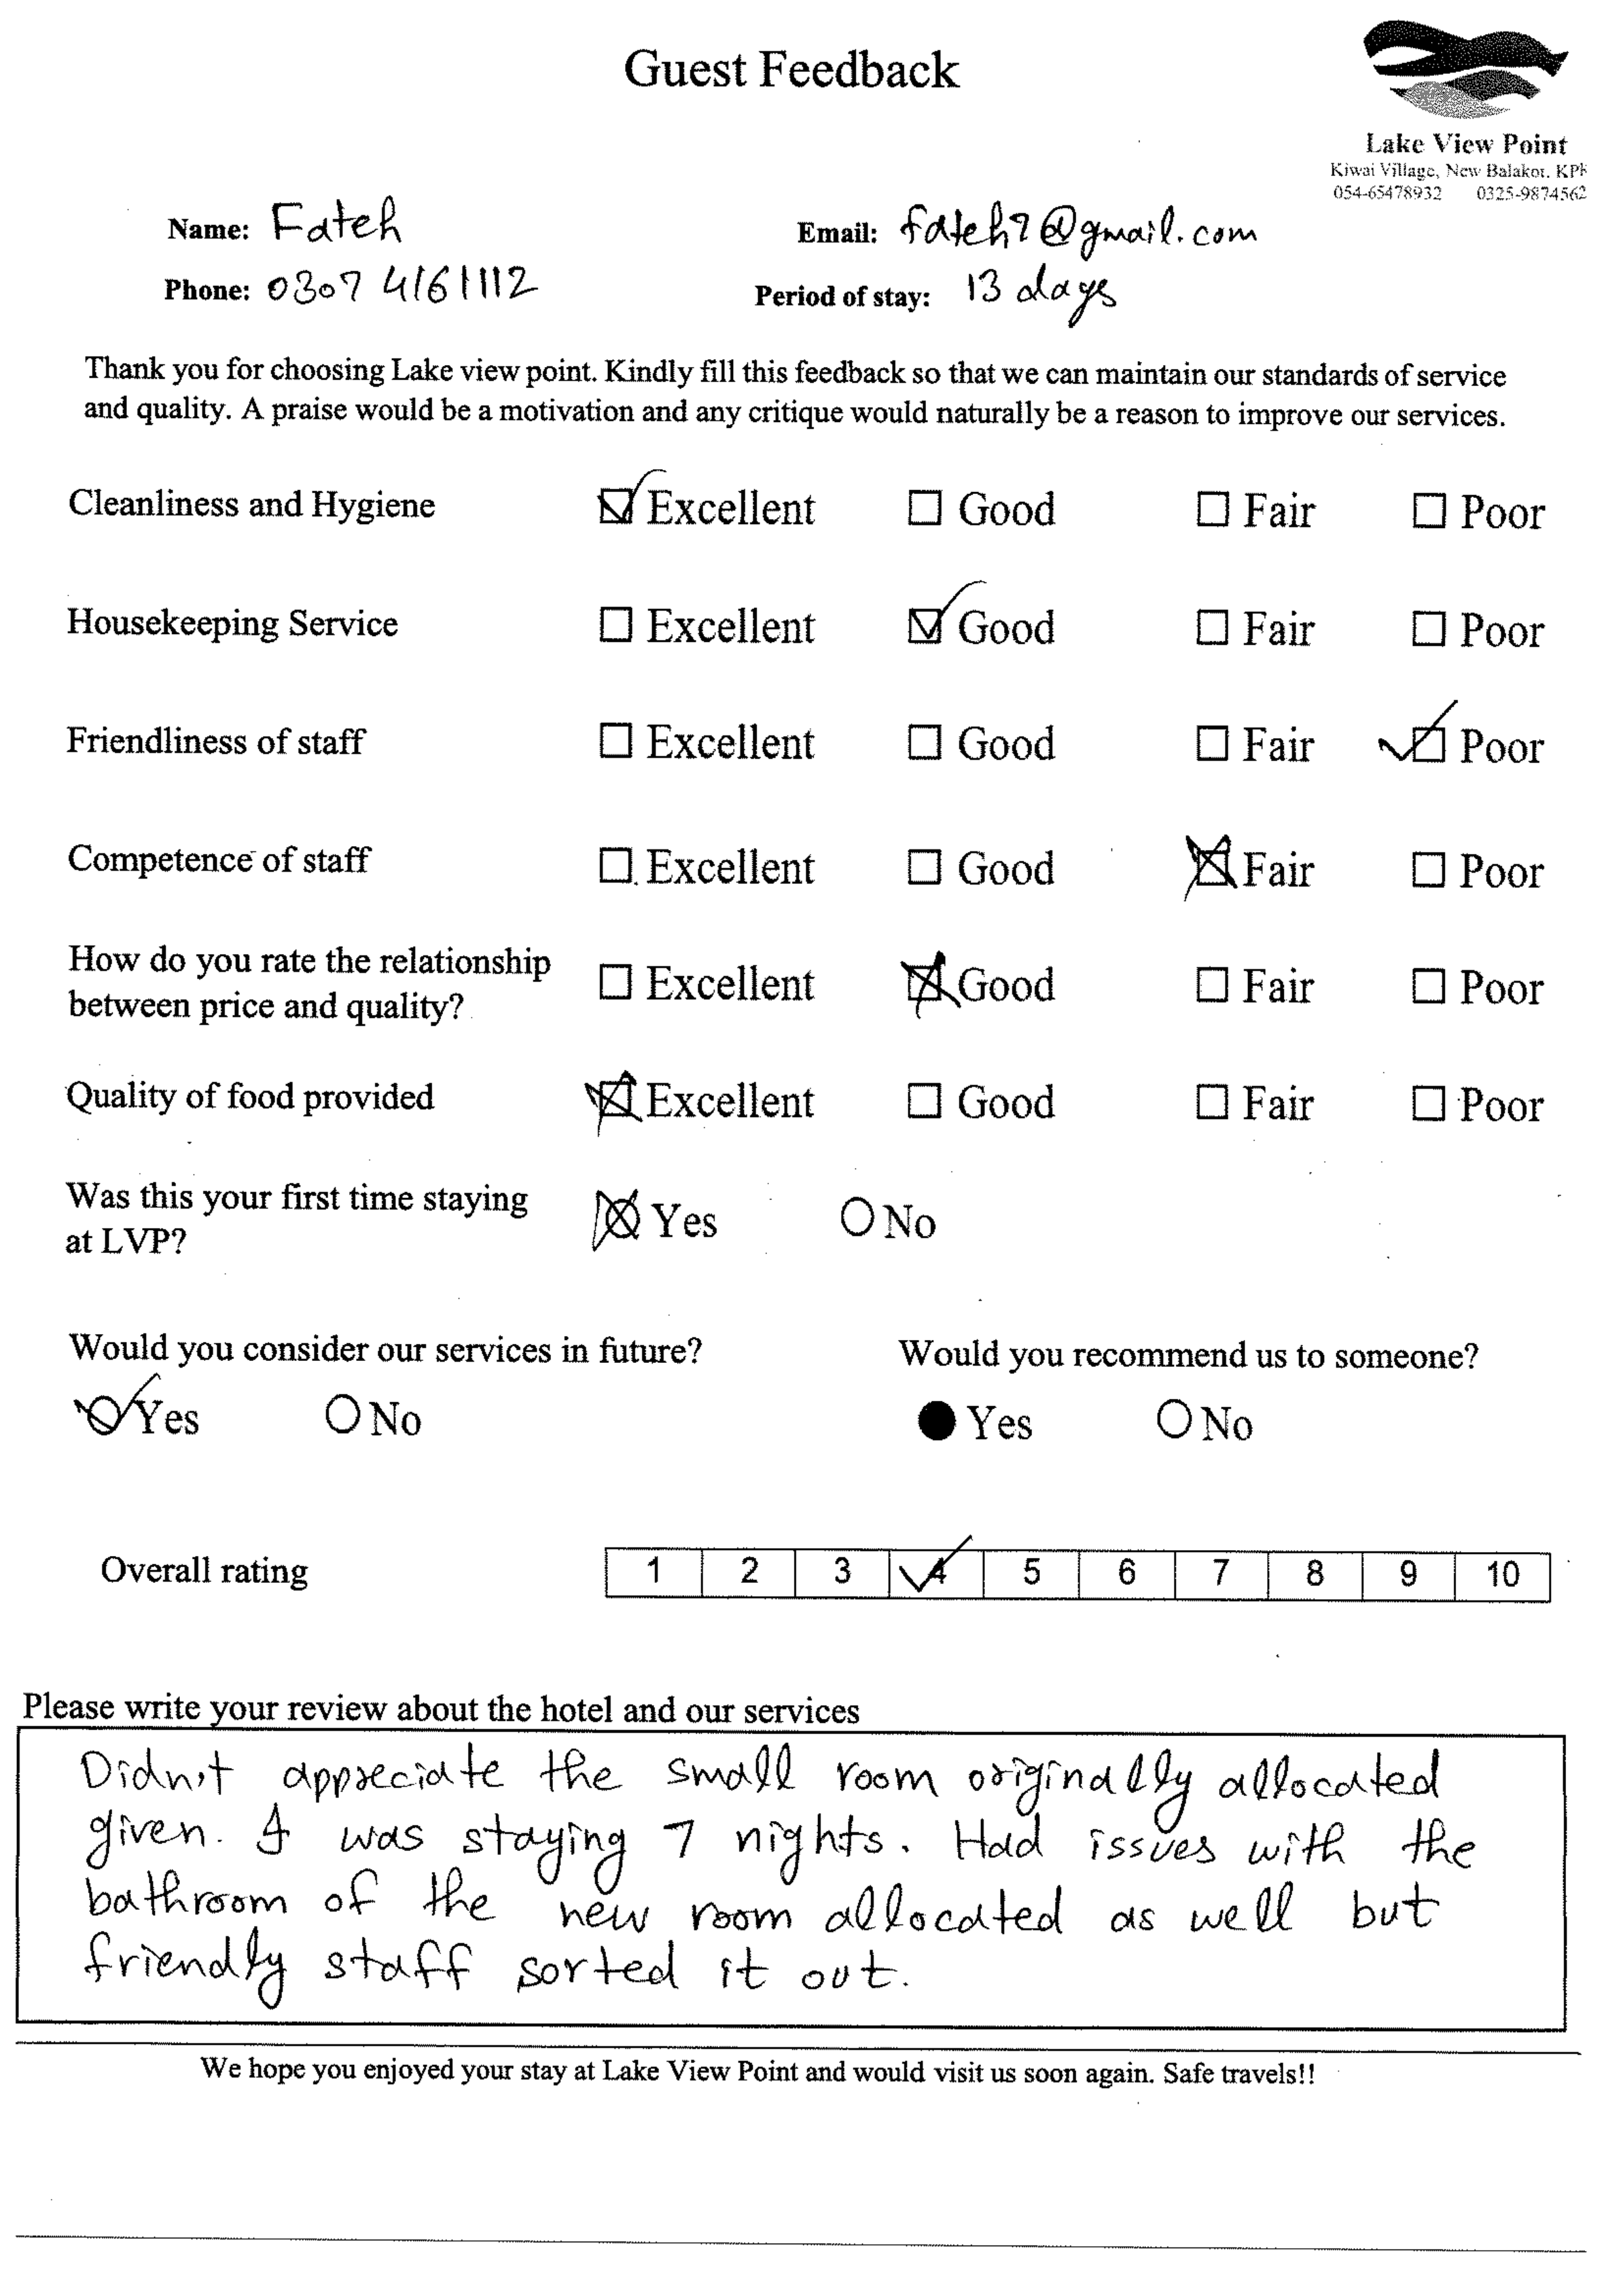 Guest Feedback
Lake View Point
Kiwai Village, New Balakot. KPK
054-65478932 0325-9874562
Name: Fateh Email: fateh7@gmail.com
Phone: 0307 4161112 Period of stay: 13 days
Thank you for choosing Lake view point. Kindly fill this feedback so that we can maintain our standards of service
and quality. A praise would be a motivation and any critique would naturally be a reason to improve our services.
Cleanliness and Hygiene ☑ Excellent ☐ Good ☐ Fair ☐ Poor
Housekeeping Service ☐ Excellent ☑ Good ☐ Fair ☐ Poor
Friendliness of staff ☐ Excellent ☐ Good ☐ Fair ☑ Poor
Competence of staff ☐ Excellent ☐ Good ☒ Fair ☐ Poor
How do you rate the relationship
between price and quality? ☐ Excellent ☒ Good ☐ Fair ☐ Poor
Quality of food provided ☒ Excellent ☐ Good ☐ Fair ☐ Poor
Was this your first time staying
at LVP? ☒ Yes ○ No
Would you consider our services in future? Would you recommend us to someone?
☑ Yes ○ No ● Yes ○ No
Overall rating 1 2 3 4 5 6 7 8 9 10
Please write your review about the hotel and our services
Didn't appreciate the small room originally allocated
given. I was staying 7 nights. Had issues with the
bathroom of the new room allocated as well but
friendly staff sorted it out.
We hope you enjoyed your stay at Lake View Point and would visit us soon again. Safe travels!!